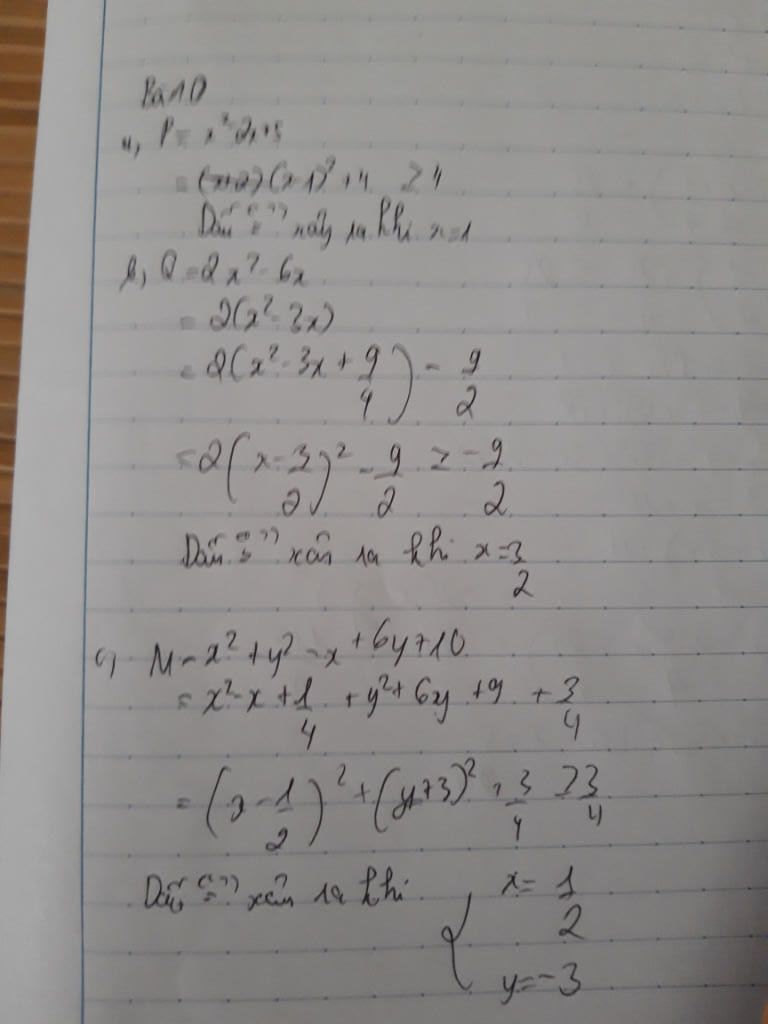 Bài 10
a, P = x² - 2x + 5
= (x-1)² + 4 ≥ 4
Dấu "=" xảy ra khi x=1
b, Q = 2x² - 6x
= 2(x² - 3x)
= 2(x² - 3x + 9/4) - 9/2
= 2(x - 3/2)² - 9/2 ≥ -9/2
Dấu "=" xẩn ra khi x = 3/2
c, M = x² + y² - x + 6y + 10
= x² - x + 1/4 + y² + 6y + 9 + 3/4
= (x - 1/2)² + (y + 3)² + 3/4 ≥ 3/4
Dấu "=" xẩn ra khi { x = 1/2
y = -3